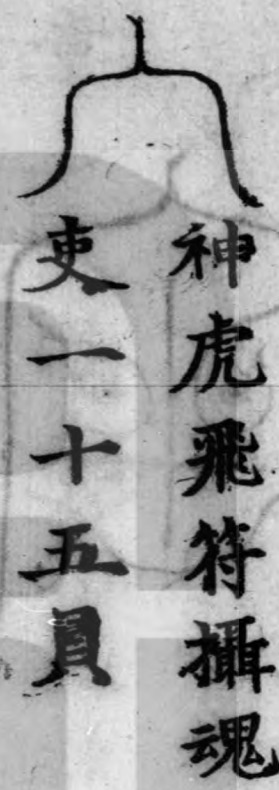 神虎飛符攝魂
吏一十五員